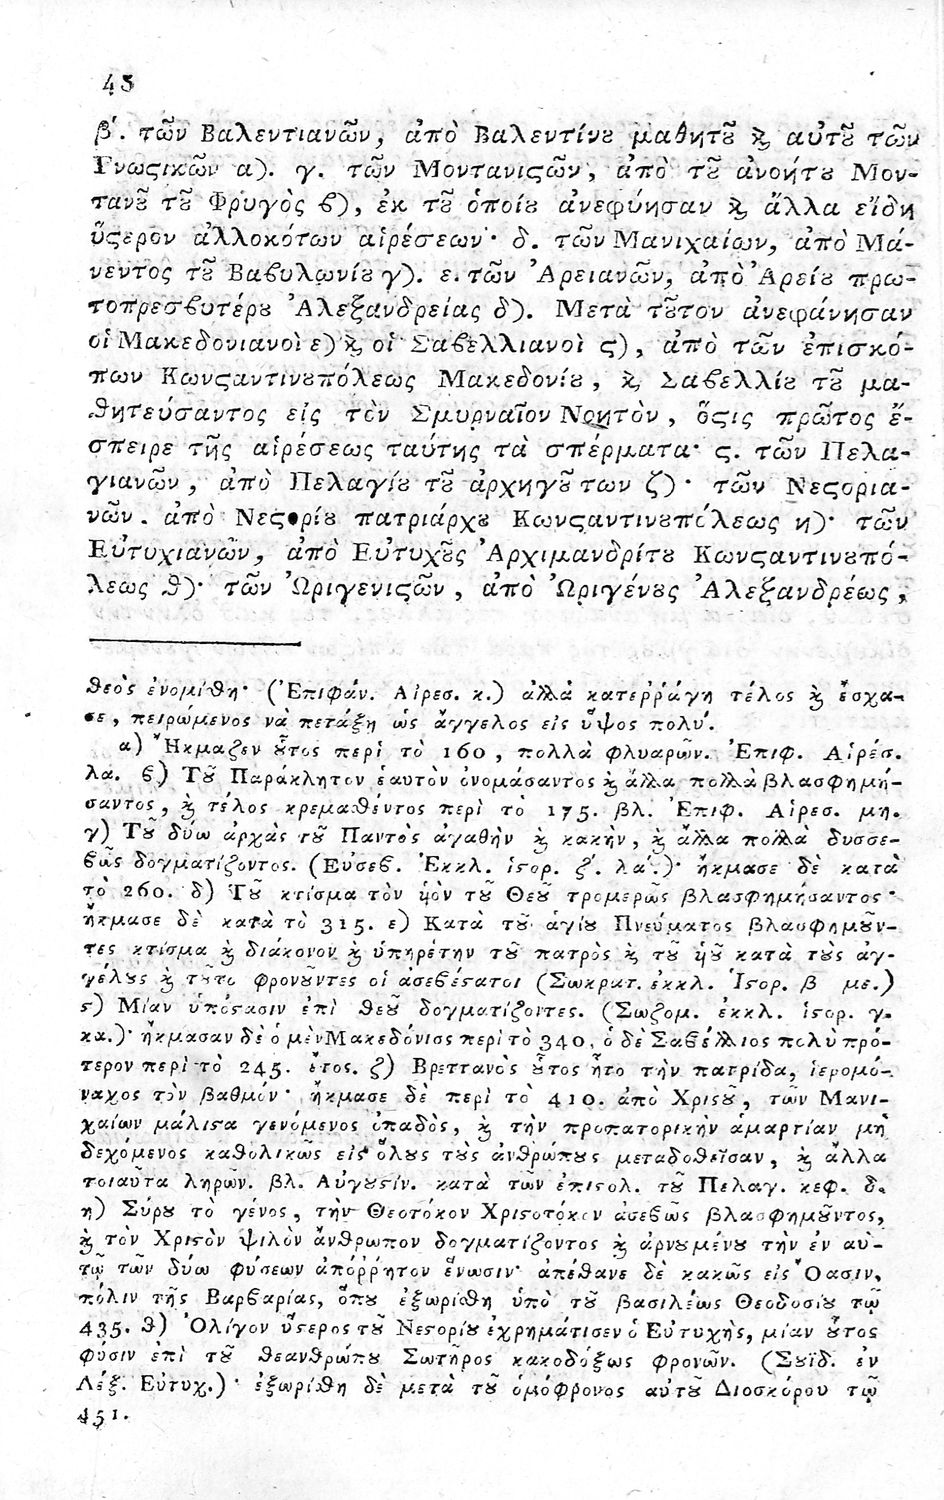 45
β'. τῶν Βαλεντιανῶν, ἀπὸ Βαλεντίνȣ μαθητȣ͂ ϗ αὐτȣ͂ τῶν
Γνωϛικῶν α). γ. τῶν Μοντανιϛῶν, ἀπὸ τȣ͂ ἀνοήτȣ Μον-
τανȣ͂ τȣ͂ Φρυγὸς ϐ), ἐκ τȣ͂ ὁποίȣ ἀνεφύησαν ϗ ἄλλα εἴδη
ὕϛερον ἀλλοκότων αἱρέσεων· δ. τῶν Μανιχαίων, ἀπὸ Μά-
νεντος τȣ͂ Βαϐυλωνίȣ γ). ε. τῶν Ἀρειανῶν, ἀπὸ Ἀρείȣ πρω-
τοπρεσϐυτέρȣ Ἀλεξανδρείας δ). Μετὰ τȣ͂τον ἀνεφάνησαν
οἱ Μακεδονιανοὶ ε) ϗ οἱ Σαϐελλιανοὶ ϛ), ἀπὸ τῶν ἐπισκό-
πων Κωνϛαντινȣπόλεως Μακεδονίȣ, ϗ Σαϐελλίȣ τȣ͂ μα-
θητεύσαντος εἰς τὸν Σμυρναῖον Νοητὸν, ὅϛις πρῶτος ἔ-
σπειρε τῆς αἱρέσεως ταύτης τὰ σπέρματα· ϛ. τῶν Πελα-
γιανῶν, ἀπὸ Πελαγίȣ τȣ͂ ἀρχηγȣ͂ των ζ)· τῶν Νεϛορια-
νῶν. ἀπὸ Νεϛορίȣ πατριάρχȣ Κωνϛαντινȣπόλεως η)· τῶν
Εὐτυχιανῶν, ἀπὸ Εὐτυχȣ͂ς Ἀρχιμανδρίτȣ Κωνϛαντινȣπό-
λεως θ)· τῶν Ὠριγενιϛῶν, ἀπὸ Ὠριγένȣς Ἀλεξανδρέως,
θεὸς ἐνομίσθη· (Ἐπιφάν. Αἱρεσ. κ.) ἀλλὰ κατεῤῥάγη τέλος ϗ ἔσχα-
σε, πειρώμενος νὰ πετάξῃ ὡς ἄγγελος εἰς ὕψος πολύ.
α) Ἤκμαζεν ȣ͗τος περὶ τὸ 160, πολλὰ φλυαρῶν. Ἐπιφ. Αἱρέσ.
λα. ϐ) Τȣ͂ Παράκλητον ἑαυτὸν ὀνομάσαντος ϗ ἄλλα πολλὰ βλασφημή-
σαντος, ϗ τέλος κρεμασθέντος περὶ τὸ 175. βλ. Ἐπιφ. Αἱρεσ. μη.
γ) Τȣ͂ δύω ἀρχὰς τȣ͂ Παντὸς ἀγαθὴν ϗ κακὴν, ϗ ἄλλα πολλὰ δυσσε-
ϐῶς δογματίζοντος. (Εὐσεϐ. Ἐκκλ. ἱϛορ. ζ'. λα'.)· ἤκμασε δὲ κατὰ
τὸ 260. δ) Τȣ͂ κτίσμα τὸν υἱὸν τȣ͂ Θεȣ͂ τρομερῶς βλασφημήσαντος·
ἤκμασε δὲ κατὰ τὸ 315. ε) Κατὰ τȣ͂ ἁγίȣ Πνεύματος βλασφημȣ͂ν-
τες κτίσμα ϗ διάκονον ϗ ὑπηρέτην τȣ͂ πατρὸς ϗ τȣ͂ υἱȣ͂ κατὰ τȣ̀ς ἀγ-
γέλȣς ϗ τȣ͂το φρονȣ͂ντες οἱ ἀσεϐέϛατοι (Σωκρατ. ἐκκλ. Ἱϛορ. β με.)
ϛ) Μίαν ὑπόϛασιν ἐπὶ θεȣ͂ δογματίζοντες. (Σωζομ. ἐκκλ. ἱϛορ. γ.
κα.)· ἤκμασαν δὲ ὁ μὲν Μακεδόνιος περὶ τὸ 340, ὁ δὲ Σαϐέλλιος πολὺ πρό-
τερον περὶ τὸ 245. ἔτος. ζ) Βρεττανὸς ȣ͗τος ἦτο τὴν πατρίδα, ἱερομό-
ναχος τὸν βαθμόν· ἤκμασε δὲ περὶ τὸ 410. ἀπὸ Χριϛȣ͂, τῶν Μανι-
χαίων μάλιϛα γενόμενος ὀπαδὸς, ϗ τὴν προπατορικὴν ἁμαρτίαν μὴ
δεχόμενος καθολικῶς εἰς ὅλους τȣ̀ς ἀνθρώπȣς μεταδοθεῖσαν, ϗ ἄλλα
τοιαῦτα ληρῶν. βλ. Αὐγυϛίν. κατὰ τῶν ἐπιϛολ. τȣ͂ Πελαγ. κεφ. δ.
η) Σύρȣ τὸ γένος, τὴν Θεοτόκον Χριϛοτόκον ἀσεϐῶς βλασφημȣ͂ντος,
ϗ τὸν Χριϛὸν ψιλὸν ἄνθρωπον δογματίζοντος ϗ ἀρνȣμένȣ τὴν ἐν αὐ-
τῷ τῶν δύω φύσεων ἀπόῤῥητον ἕνωσιν· ἀπέθανε δὲ κακῶς εἰς Ὄασιν,
πόλιν τῆς Βαρϐαρίας, ὅπȣ ἐξωρίσθη ὑπὸ τȣ͂ βασιλέως Θεοδοσίȣ τῷ
435. θ) Ὀλίγον ὕϛερος τȣ͂ Νεϛορίȣ ἐχρημάτισεν ὁ Εὐτυχὴς, μίαν ȣ͗τος
φύσιν ἐπὶ τȣ͂ θεανθρώπȣ Σωτῆρος κακοδόξως φρονῶν. (Σȣΐδ. ἐν
Λέξ. Εὐτυχ.)· ἐξωρίσθη δὲ μετὰ τȣ͂ ὁμόφρονος αὐτȣ͂ Διοσκόρου τῷ
451.